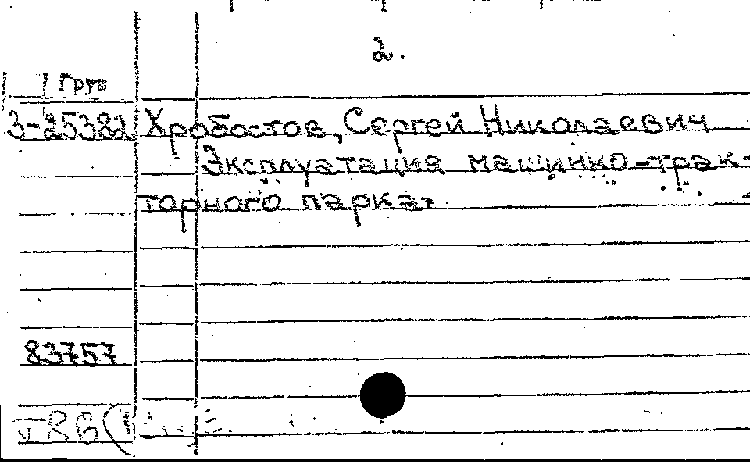 2.
3-25382 Хробостов, Сергей Николаевич
Эксплуатация машинно-трак-
торного парка.
83757